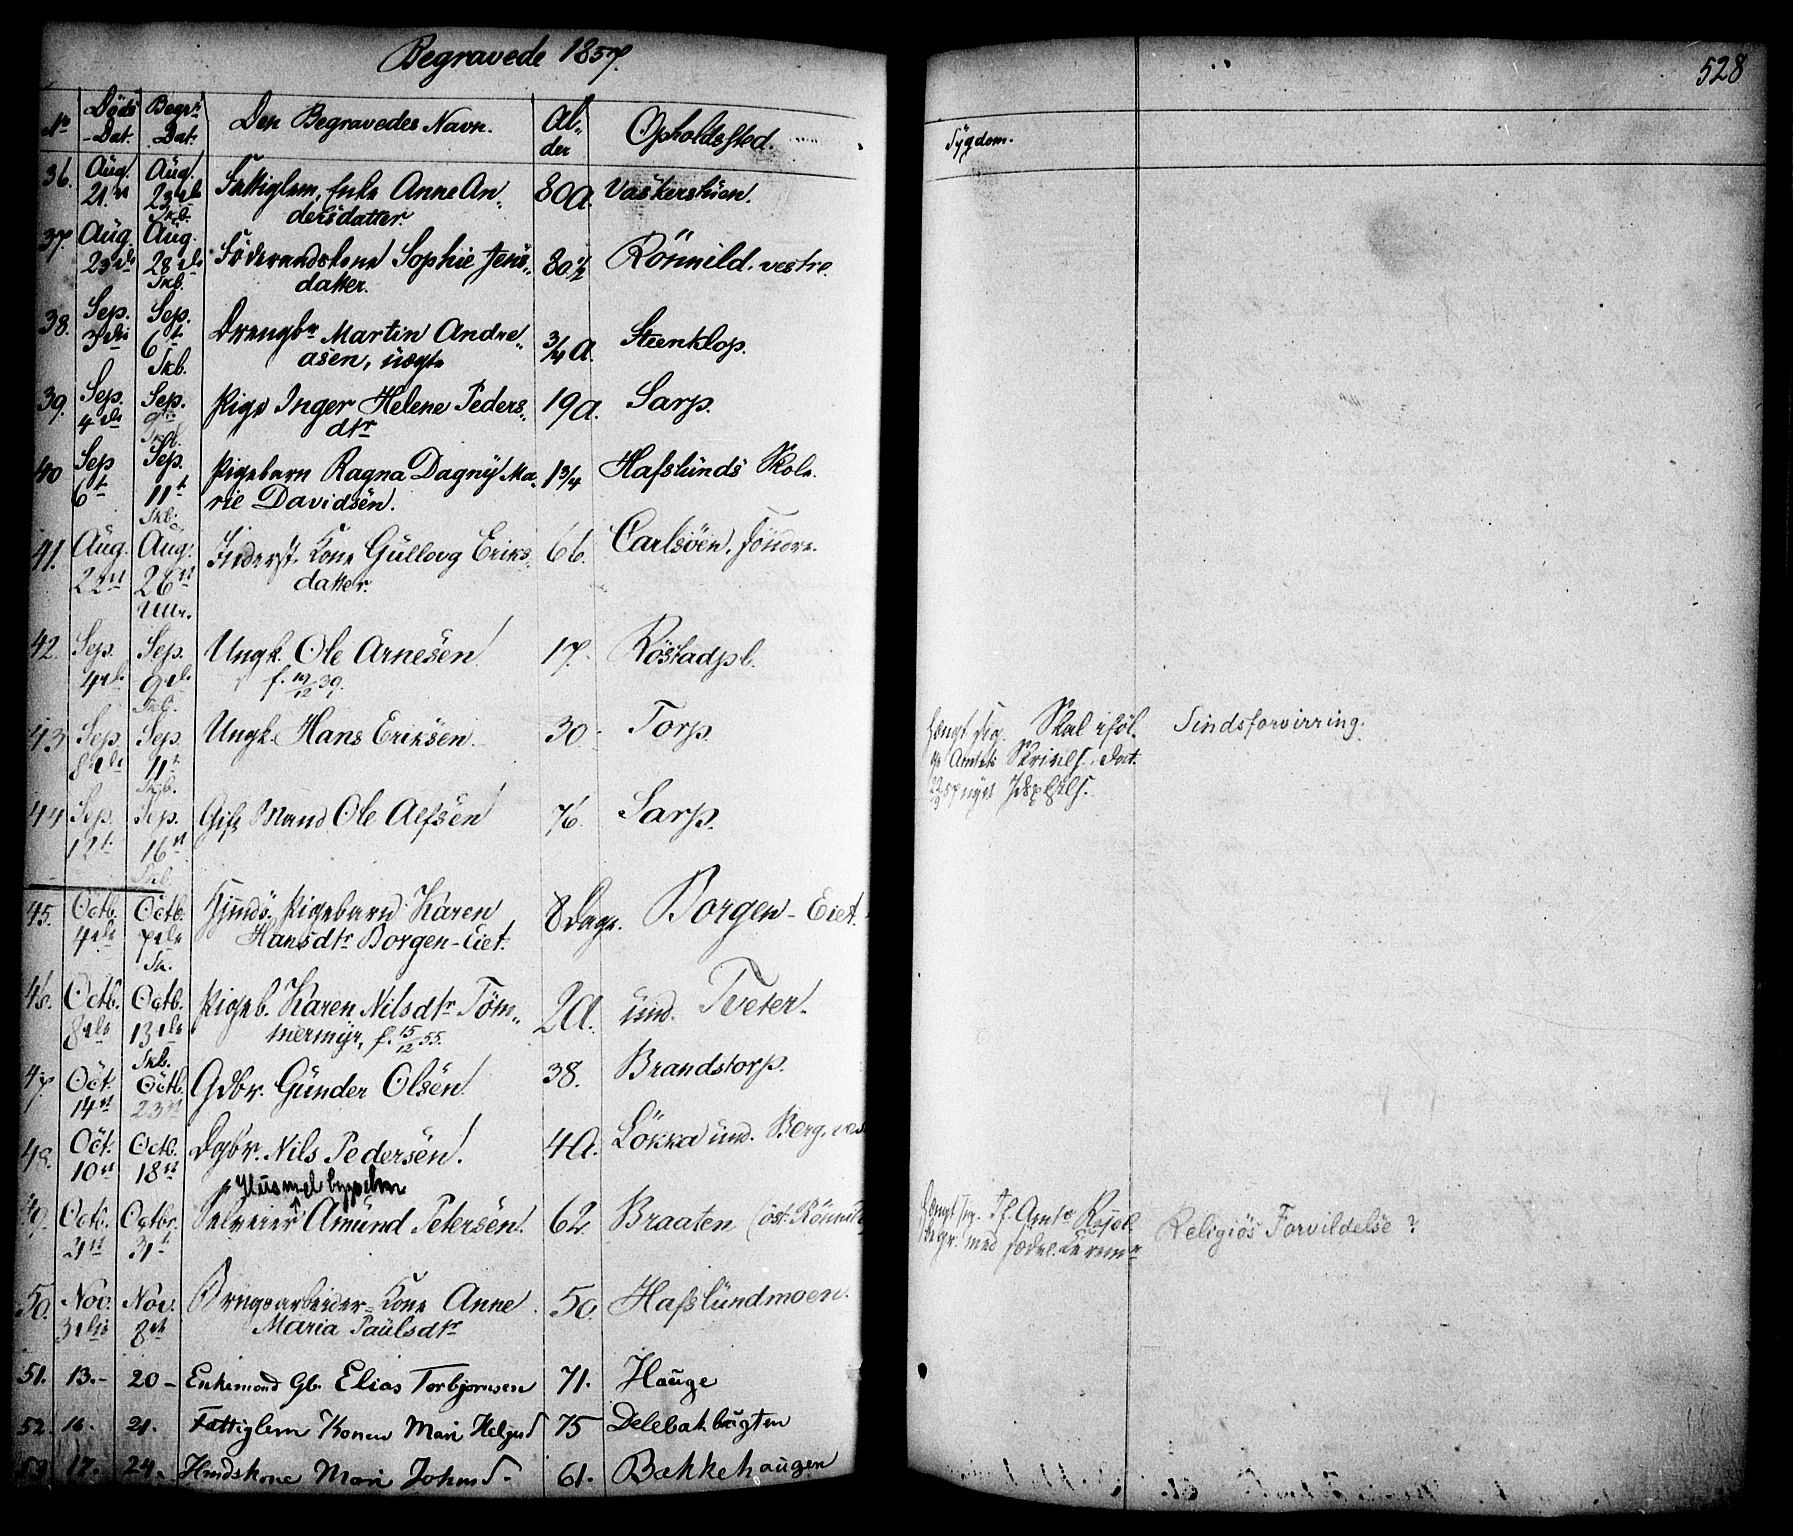 Begravede 1857.
528
No Döds Dat. Begr. Dat. Den Begravedes Navn. Alder Opholdssted. Sygdom.
36. Aug. 21. Aug. 23de Skb. Fattiglem, Enke Anne An-
dersdatter. 80 A. Vaskerskien.
37 Aug. 23de Aug. 28de Skb. Föderaadskone Sophie Jens-
datter. 80 1/2 Rönnild. vestre.
38. Sep. 3die Sep. 6t Skb. Drengbn Martin Andre-
asen, uægte 3/4 A. Steenklop.
39. Sep. 4de Sep. 9de Skb. Pige Inger Helene Peders-
dtr 19 A. Sarp.
40 Sep 6t Sep. 11t Skb. Pigebarn Ragna Dagny Ma-
rie Davidsen. 1 3/4 Hafslunds Skole.
41. Aug. 22 Aug. 26 Ullr. Inderst. Kone Gullovg Eriks-
datter. 66. Carlsöen, söndre.
42. Sep. 4de Sep. 9de Skb. Ungk. Ole Arnesen
f. 39. 17. Röstadpl.
43 Sep. 8de Sep. 11t Skb. Ungk. Hans Eriksen. 30. Torp. Hængt sig. Skal iföl-
ge Amtets Skrivelse Dat. Sindsforvirring.
44 Sep. 12t Sep. 16 Skb. Gift Mand Ole Alfsen 76. Sarp.
45. Octb. 4de Octb. 7de Sk. Hjmdö. Pigebarn Karen
Hansdtr Borgen-Eiet. 8 Dage. Borgen-Eiet.
46. Octb. 8de Octb. 13de Skb. Pigeb. Karen Nilsdtr Töm-
mermyr, f. 15/12 55. 2 A. und. Tveter.
47 Oct. 14 Octb. 23 Gdbr. Gunder Olsen 38. Brandstorp.
48. Oct. 10 Octb. 18 Dgbr. Nils Pedersen. 4 A. Lökka und. Borg.
Huusmd
49. Octb. 21 Octbr. 31t Selveier Amund Petersen. 62 Braaten (öst. Rönnild Hængt sig. If. Amts Resol.
begr. med sædvl. Cerem. Religiös Forvildelse?
50. Nov. 3die Nov. 8de Brugsarbeider-Kone Anne
Maria Paulsdtr 50. Hafslundmoen.
51. 13.- 20- Enkemand Gb. Elias Torbjornsen 71. Hauge
52. 16. 21. Fattiglem Konen Mari Helgesd 75 Delebakbugten
53 17. 24. Huuskone Mari Johnsd. 61. Bakkehaugen